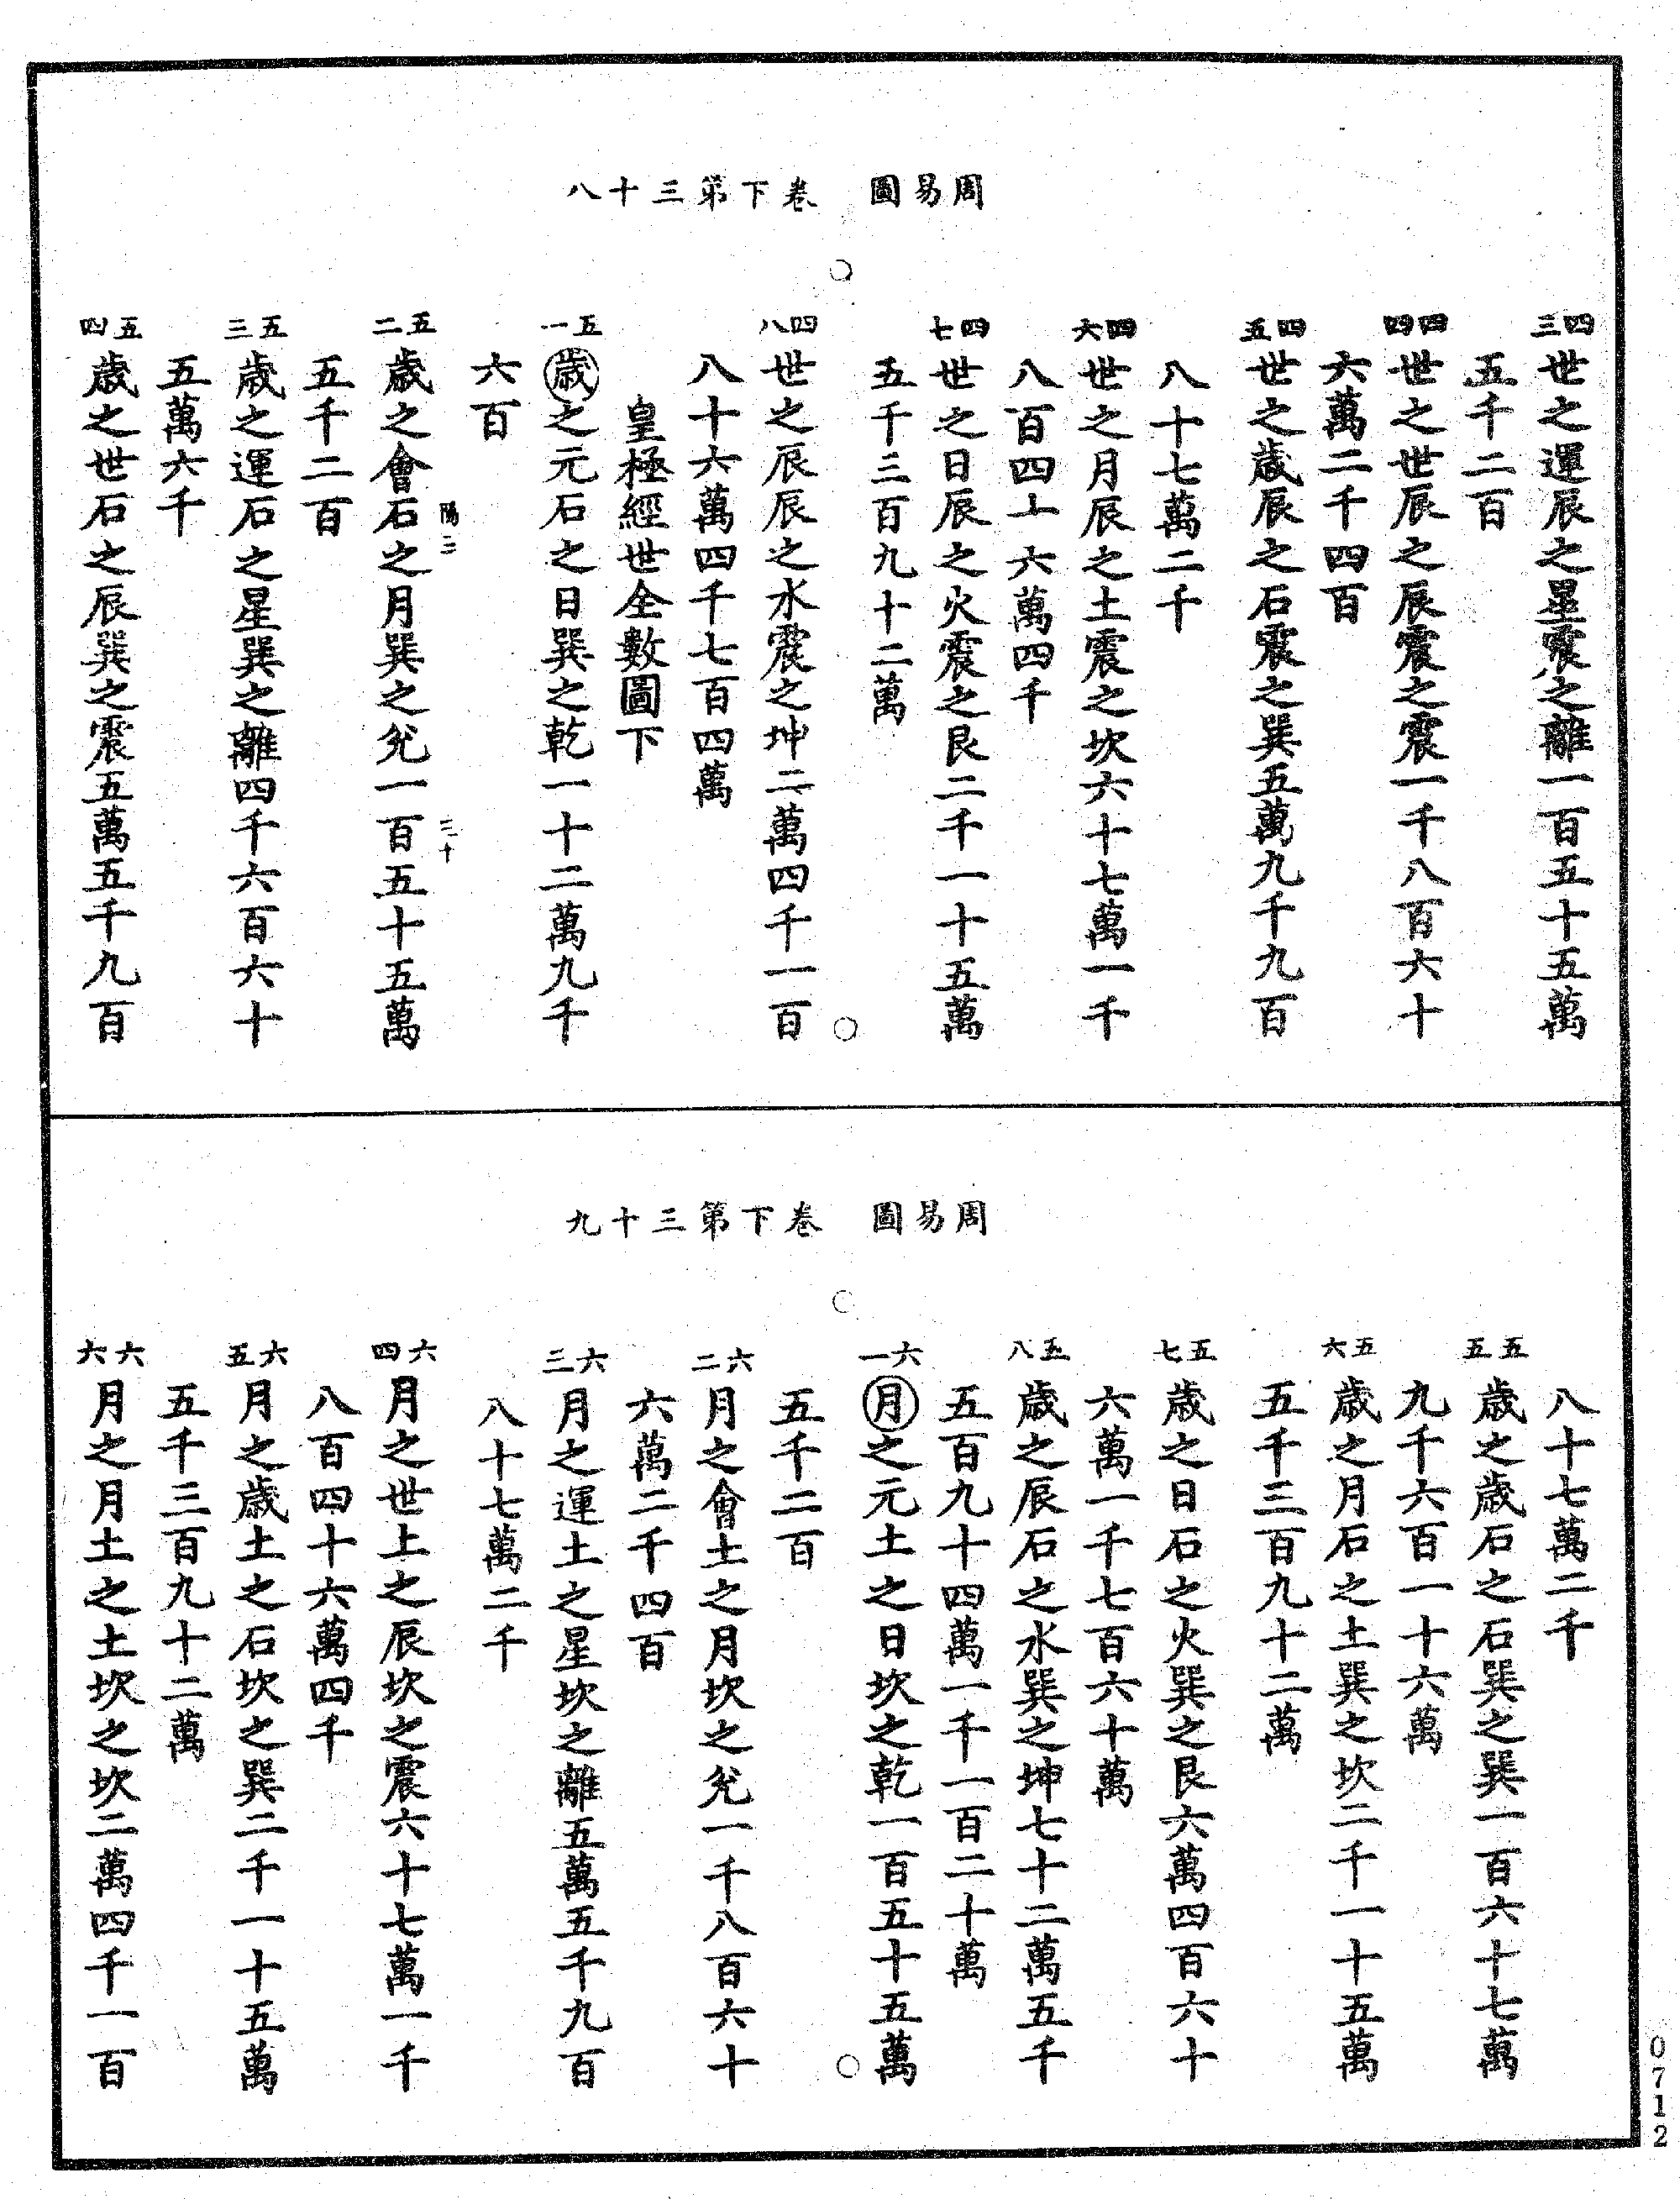 周易圖　卷下第三十八
四三
世之運辰之星震之離一百五十五萬
五千二百
四四
世之世辰之辰震之震一千八百六十
六萬二千四百
四五
世之歲辰之石震之巽五萬九千九百
八十七萬二千
四六
世之月辰之土震之坎六十七萬一千
八百四十六萬四千
四七
世之日辰之火震之艮二千一十五萬
五千三百九十二萬
四八
世之辰辰之水震之坤二萬四千一百
八十六萬四千七百四萬
皇極經世全數圖下
五一
歲之元石之日巽之乾一十二萬九千
六百
陽二
三十
五二
歲之會石之月巽之兊一百五十五萬
五千二百
五三
歲之運石之星巽之離四千六百六十
五萬六千
五四
歲之世石之辰巽之震五萬五千九百
周易圖　卷下第三十九
八十七萬二千
五五
歲之歲石之石巽之巽一百六十七萬
九千六百一十六萬
五六
歲之月石之土巽之坎二千一十五萬
五千三百九十二萬
五七
歲之日石之火巽之艮六萬四百六十
六萬一千七百六十萬
五八
歲之辰石之水巽之坤七十二萬五千
五百九十四萬一千一百二十萬
六一
月之元土之日坎之乾一百五十五萬
五千二百
六二
月之會土之月坎之兊一千八百六十
六萬二千四百
六三
月之運土之星坎之離五萬五千九百
八十七萬二千
六四
月之世上之辰坎之震六十七萬一千
八百四十六萬四千
六五
月之歲土之石坎之巽二千一十五萬
五千三百九十二萬
六六
月之月土之土坎之坎二萬四千一百
0712